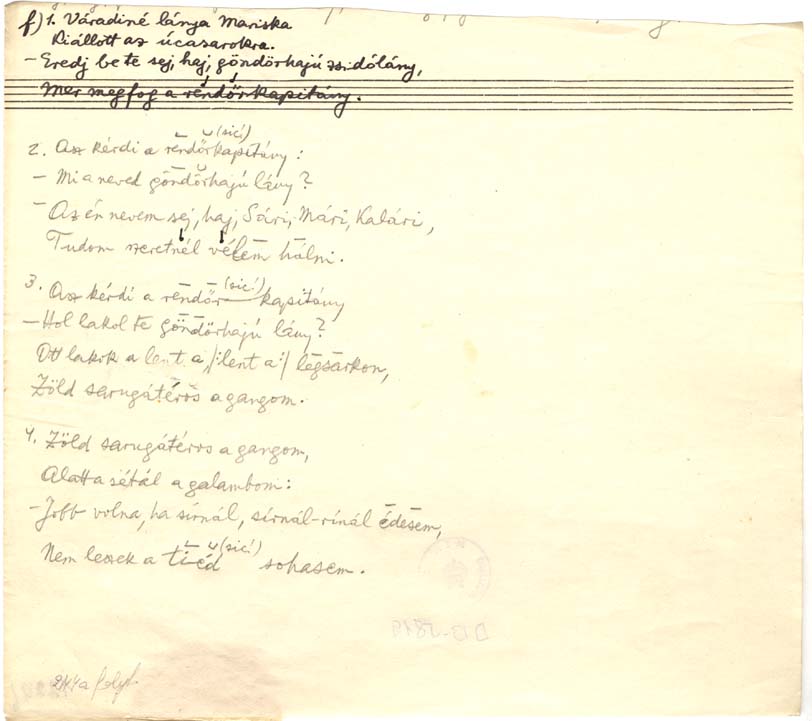 f) 1. Váradiné lánya Mariska
Kiállott az úcasarokra.
– Eredj be te sej, haj, göndörhajú zsidólány,
Mer megfog a rendőrkapitány.
2. Asz kérdi a rendőrkapitány: (sic!)
– Mi a neved göndörhajú lány?
– Az én nevem sej, haj, Sári, Mári, Kalári,
Tudom szeretnél vélem hálni.
3. Asz kérdi a rendőrkapitány (sic!)
– Hol lakol te göndörhajú lány?
Ott lakok a lent a, /:lent a:/ légsarkon,
Zöld sarugátéros a gangom.
4. Zöld sarugátéros a gangom,
Alatta sétál a galambom:
– Jobb volna, ha sírnál, sírnál-rínál édesem,
Nem leszek a tiéd (sic!) sohasem.